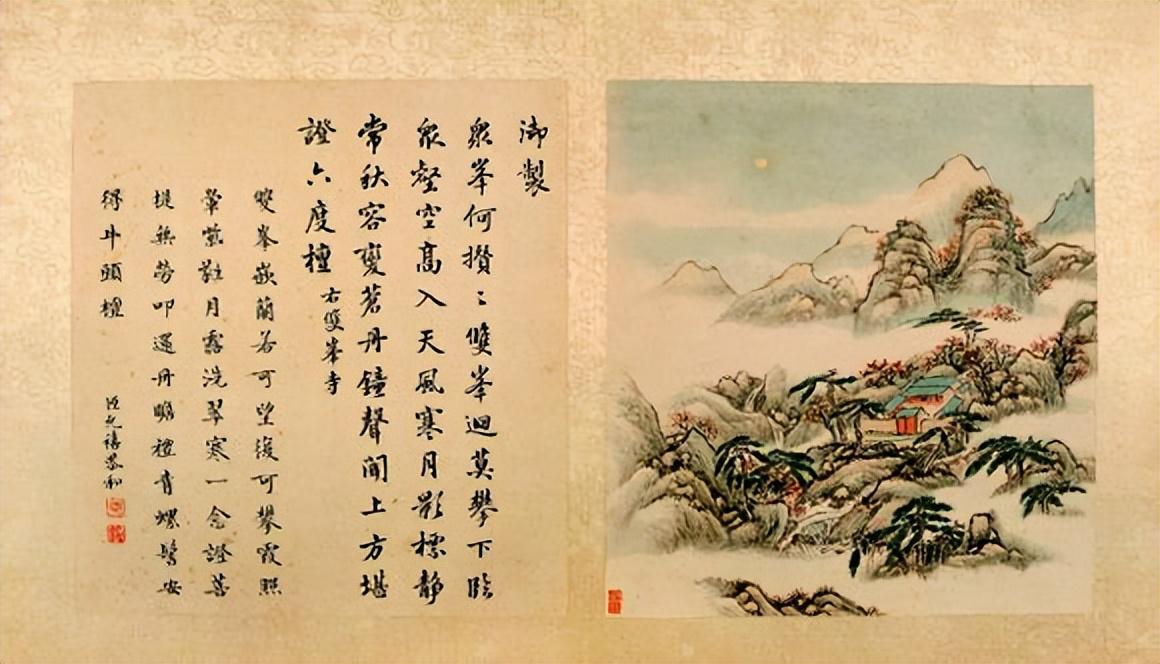 御製
衆峯何攢〻雙峯迴莫攀下臨
衆壑空高入天風寒月影標静
常秋容變蒼丹鐘聲聞上方堪
證六度檀
右雙峯寺
雙峯嵌蘭若可望復可攀霞照
月露洗翠寒一念證菩
提無勞叩還丹瞻禮青螺髻安
得斗頭檀
臣允禧恭和